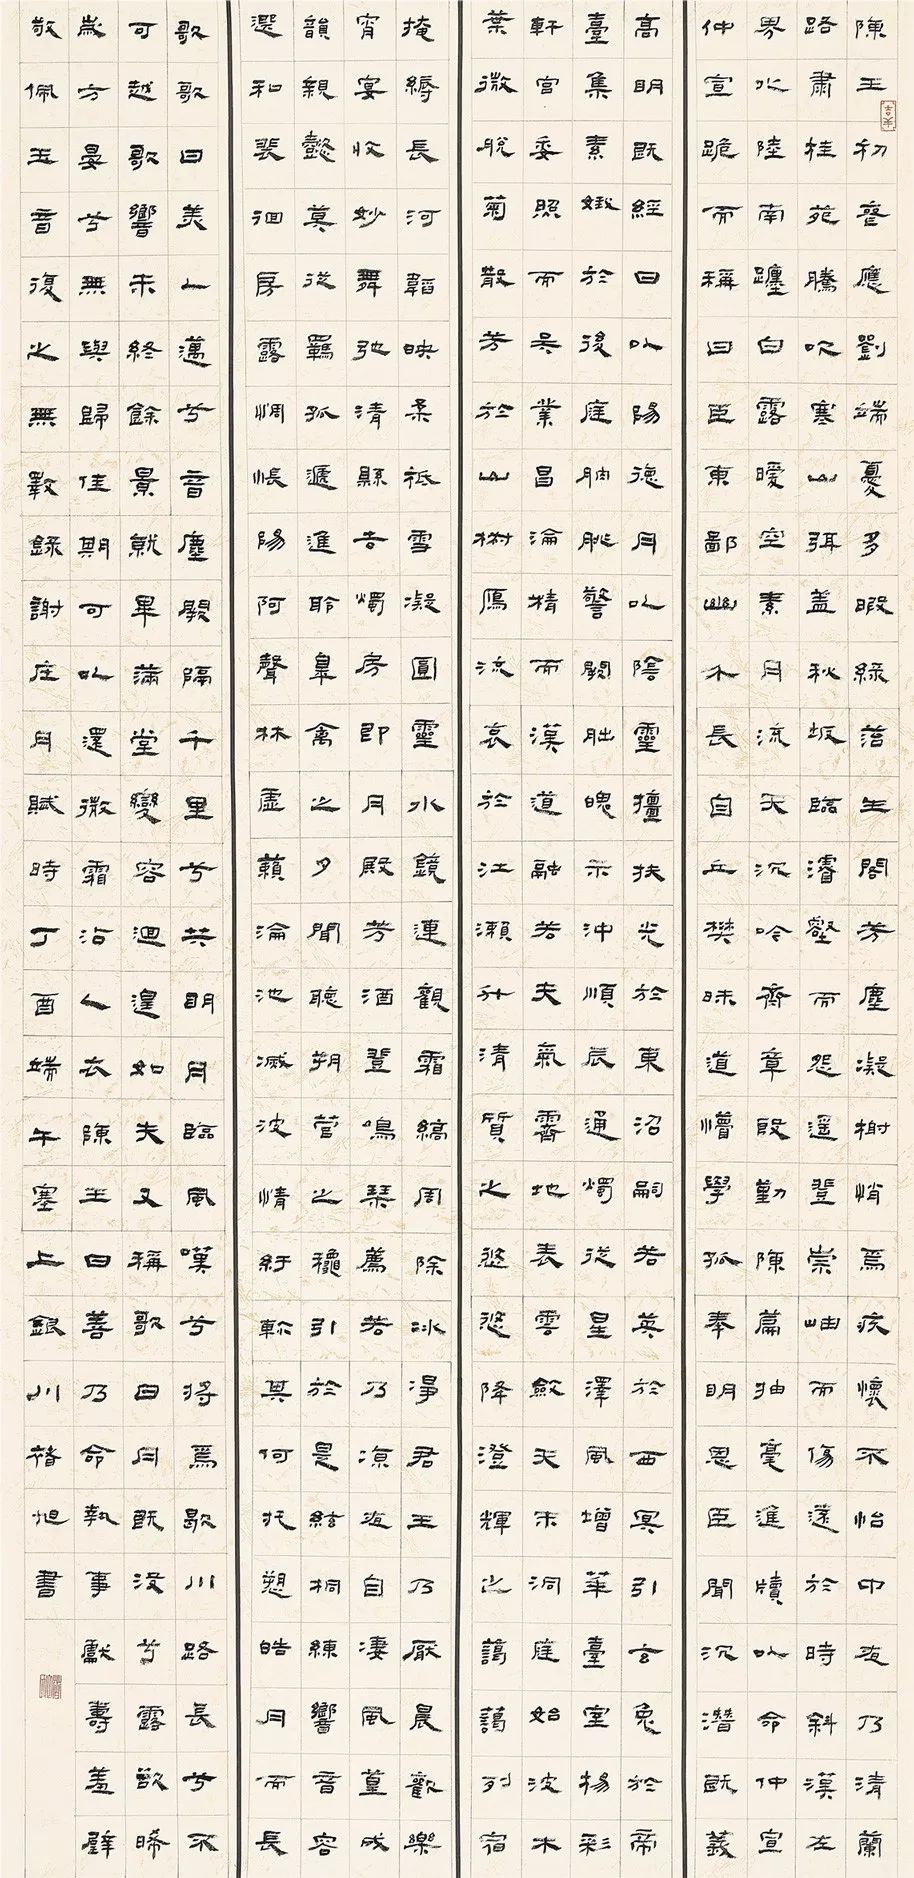 陳王初喪應劉端憂多暇綠苔生閣芳塵凝榭悄焉疚懷不怡中夜乃清蘭
路肅桂苑騰吹寒山弭盖秋坂臨濬壑而怨遥登崇岫而傷遠於時斜漢左
界北陸南躔白露曖空素月流天沉吟齊章殷勤陳篇抽毫進牘以命仲宣
仲宣跪而稱曰臣東鄙幽介長自丘樊昧道懵學孤奉明恩臣聞沉潛既義
高明既經日以陽德月以陰靈擅扶光於東沼嗣若英於西冥引玄兔於帝
臺集素娥於後庭朒朓警闕朏魄示沖順辰通燭從星澤風增華臺室揚彩
軒宮委照而吳業昌淪精而漢道融若夫氣霽地表雲斂天末洞庭始波木
葉微脫菊散芳於山椒鴈流哀於江瀨升清質之悠悠降澄輝之藹藹列宿
掩縟長河韜映柔祇雪凝圓靈水鏡連觀霜縞周除冰淨君王乃厭晨歡樂
宵宴收妙舞弛清縣去燭房即月殿芳酒登鳴琴薦若乃涼夜自凄風篁成
韻親懿莫從羈孤遞進聆皋禽之夕聞聽朔管之穐引於是絃桐練響音容
選和裴徊房露惆悵陽阿聲林虛籟淪池滅波情紆軫其何托愬皓月而長
歌歌曰美人邁兮音塵闕隔千里兮共明月臨風嘆兮將焉歇川路長兮不
可越歌響未終餘景就畢滿堂變容迴遑如失又稱歌曰月既沒兮露欲晞
歲方晏兮無與歸佳期可以還微霜沾人衣陳王曰善乃命執事獻壽羞璧
敬佩玉音復之無斁錄謝庄月賦時丁酉端午塞上銀川褚旭書